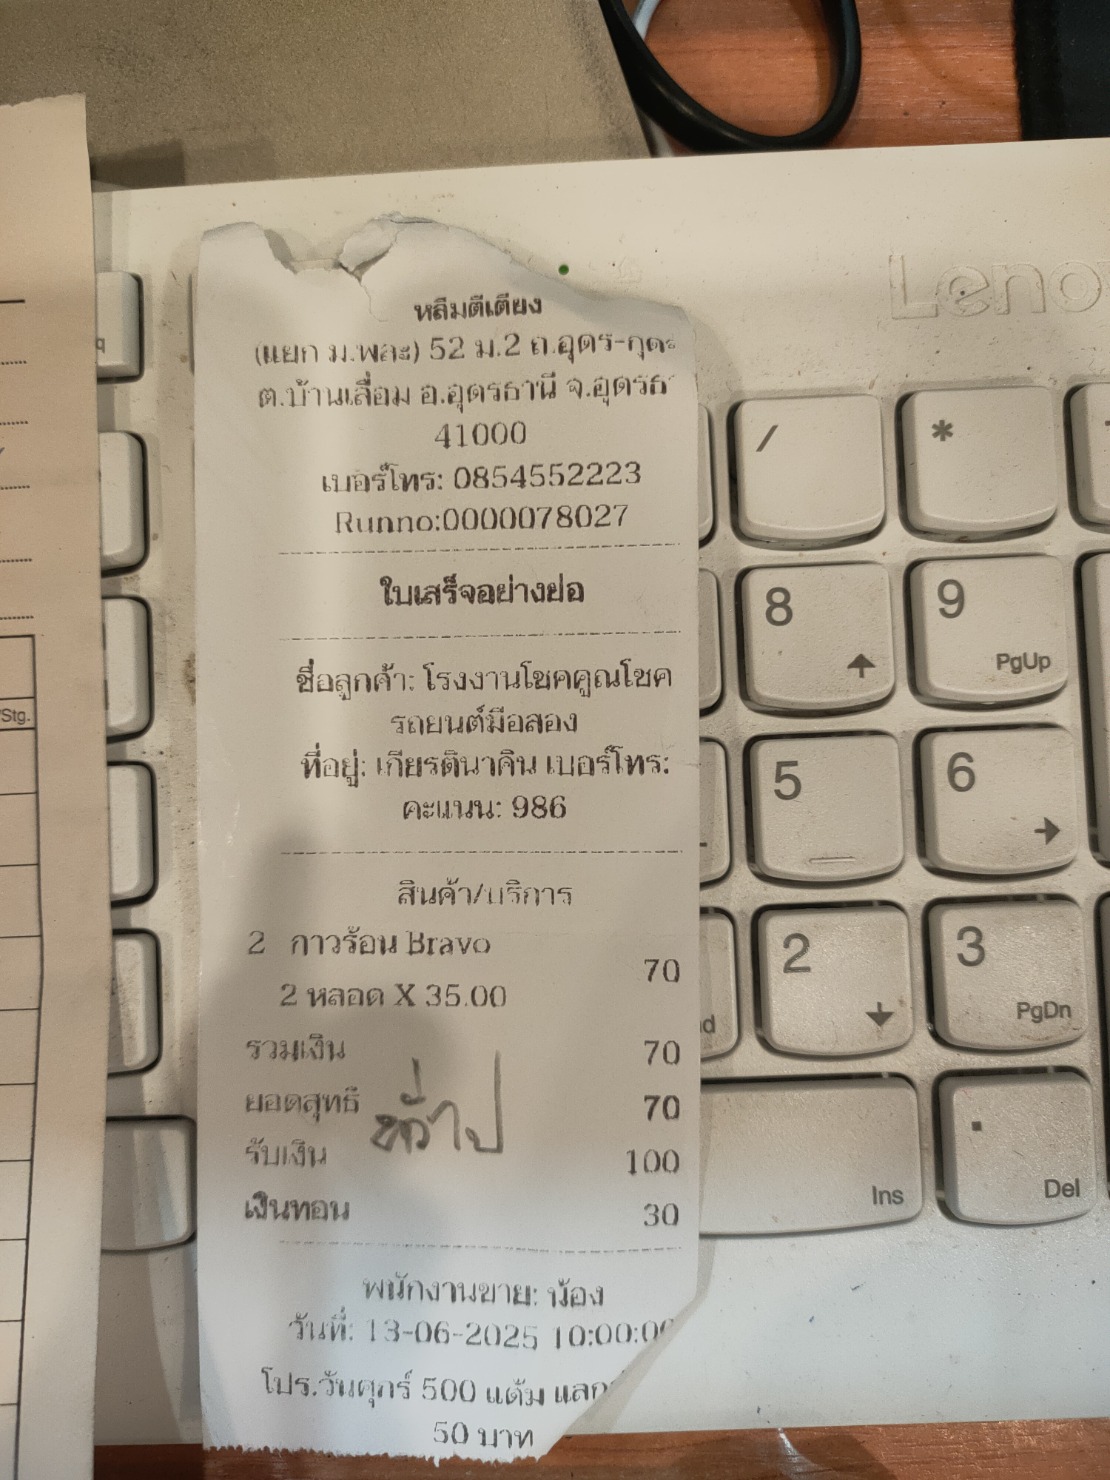 หลิมตีเตียง
(แยก ม.พละ) 52 ม.2 ถ.อุดร-กุดะ
ต.บ้านเลื่อม อ.อุดรธานี จ.อุดรธ
41000
เบอร์โทร: 0854552223
Runno:0000078027
ใบเสร็จอย่างย่อ
ชื่อลูกค้า: โรงงานโชคคูณโชค
รถยนต์มือสอง
ที่อยู่: เกียรตินาคิน เบอร์โทร:
คะแนน: 986
สินค้า/บริการ
2 กาวร้อน Bravo
70
2 หลอด X 35.00
รวมเงิน 70
ยอดสุทธิ 70
ทั่วไป
รับเงิน 100
เงินทอน 30
พนักงานขาย: น้อง
วันที่: 13-06-2025 10:00:00
โปร.วันศุกร์ 500 แต้ม แลก
50 บาท
Leno
/ *
8 9
PgUp
5 6
2 3
PgDn
Ins
. Del
/Stg.